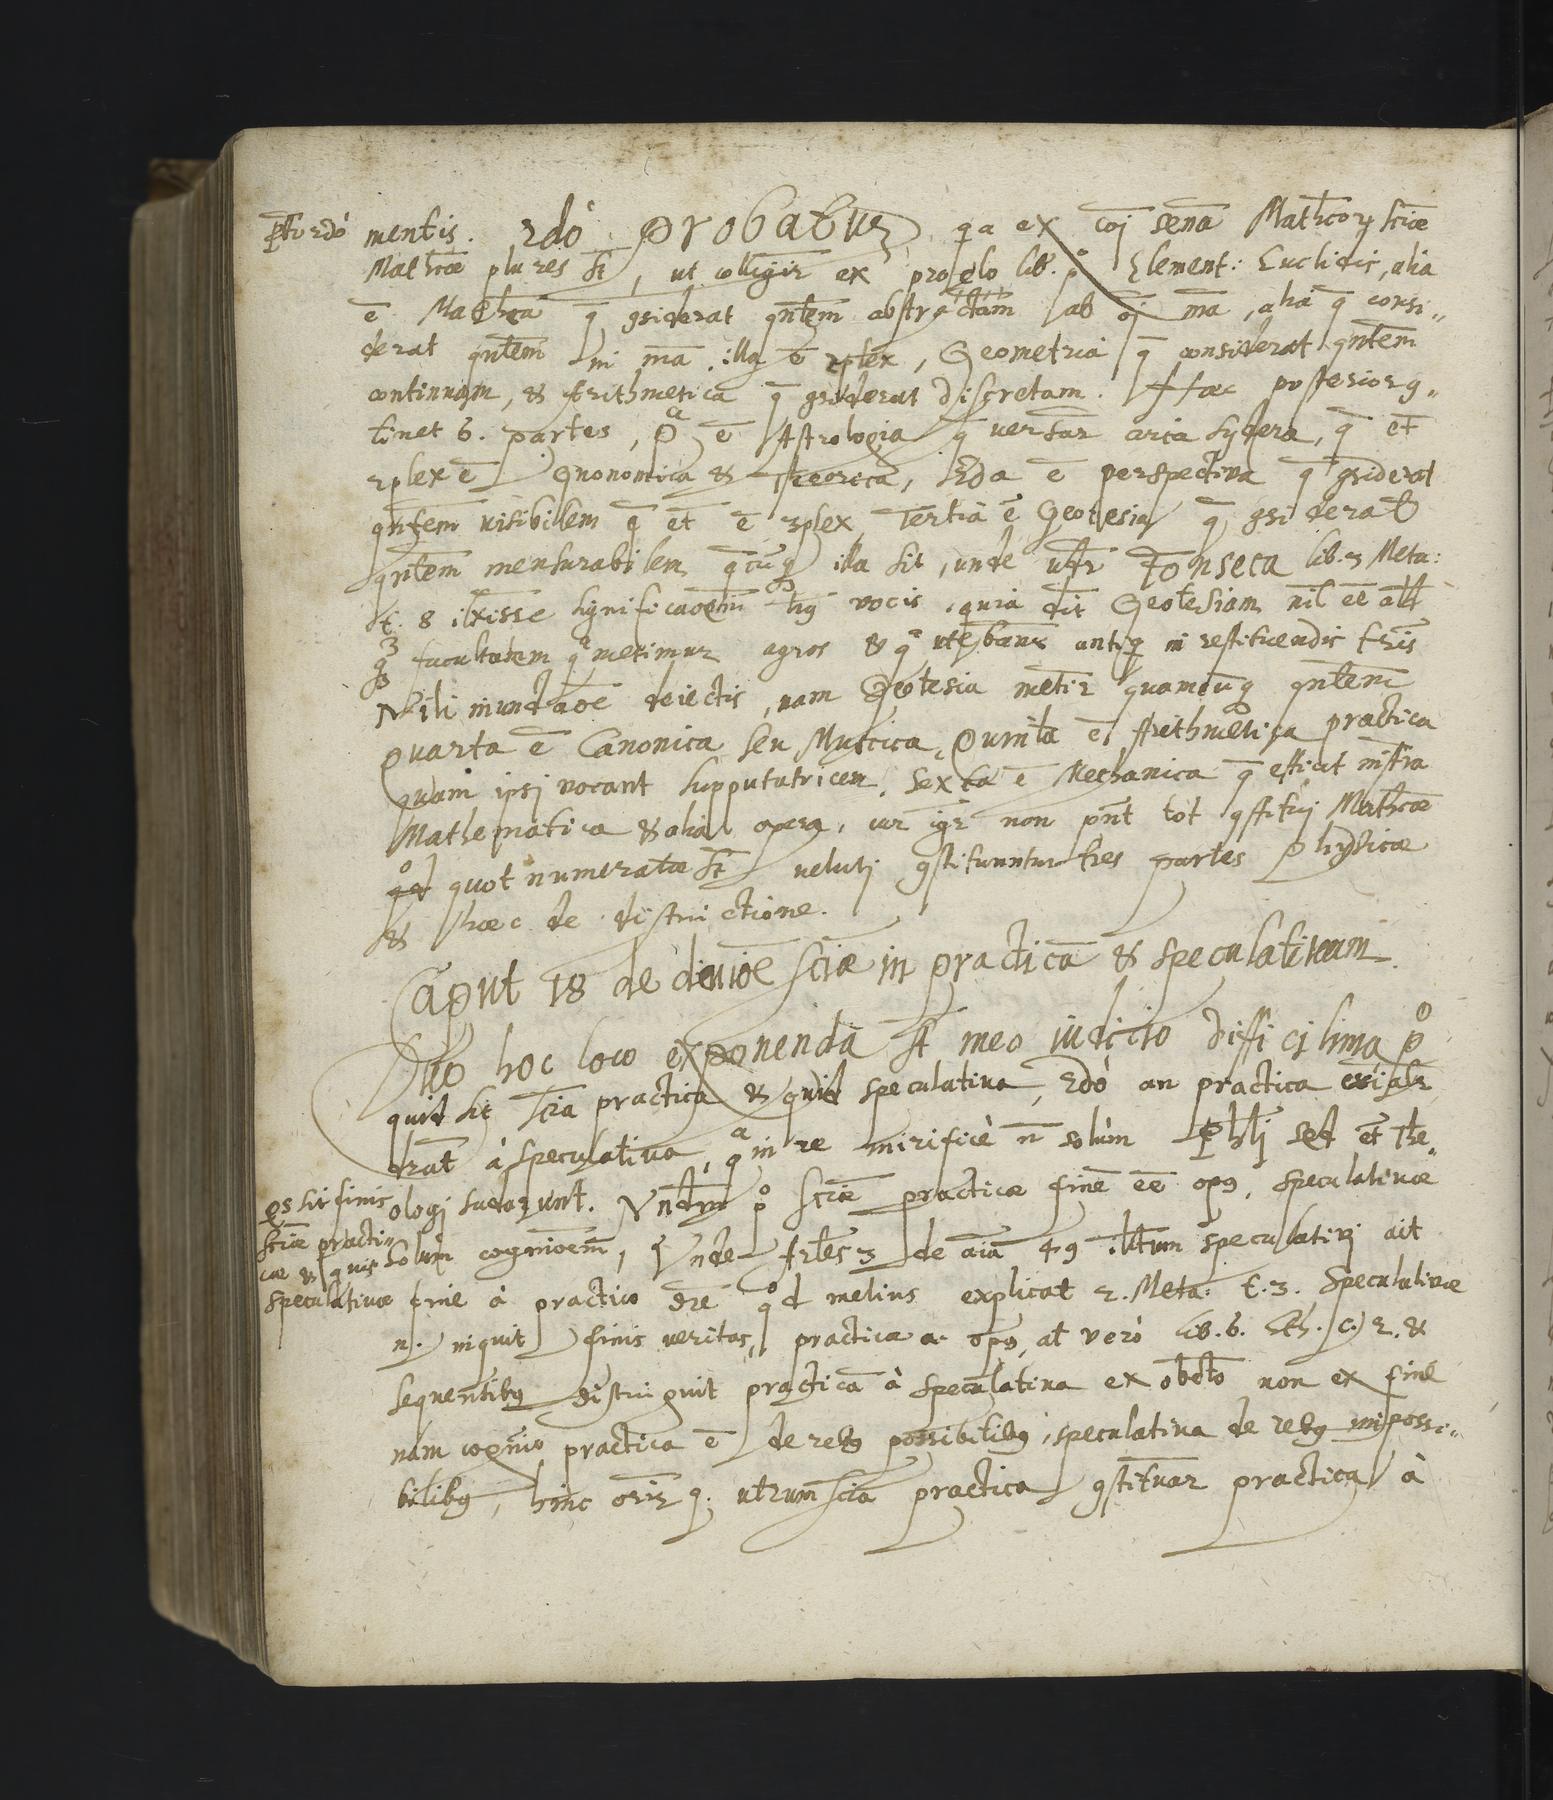 mentis. 2dò Probatur qa ex coi senã Mathcorũ sciæ
Mathcæ plures st, ut colligir ex proclo lib. pº Element: Euclidis, alia
ē Mathca q̄ gsiderat qntem abstractam ab oj mã, alia q̄ consi„
derat qntem in mã illa ē 2plex, Geometria q̄ considerat qntem
continuam, & Arithmetica q̄ gsiderat discretam. Hæc posterior g„
tinet 6. partes, Pª ē Astrologia q̄ versar circa sydera, q̄ et
2plex ē Gnonomica & Theorica, 2da ē perspectiva q̄ gsiderat
qntem visibilem q̄ et ē 3plex Tertia ē Geotesia q̄ gsiderat
qntem mensurabilem qcūq illa sit, unde Fonseca lib. 3 Meta:
significaoem vocis, quia dit Geotesiam nil eē
facultatem qª metimur agros & qª utebanr antiq in restituendis tris
Nili inundaoē deiectis, nam Geotesia metir quamcūq qntem
quarta ē Canonica seu Mussica, Quinta ē Arithmetica practica
quam ipsi vocant supputatricem, Sexta ē Mechanica q̄ efficit instra
Mathematica & alia opera, cur igr non pnt tot gstitui Mathcæ
quot numeratæ st veluti gstituuntur tres partes Physicæ
& hæc de distinctione.
Caput 18 de divioē sciæ in practicã & speculativam
Duo hoc loco exponenda st meo iudicio difficilima pº
quid sit scia practica & quid speculativa, 2dò an practica
à speculativa, qª in re mirificè n̄ solùm Phhi sed et The„
ologi sudarunt. pº sciæ practicæ finē eē opg, speculativæ
Qs sit finis
sciæ practi„
cæ & quis
speculativæ
solùm cognioem, Unde Arles 3 de aiã 49 speculativi ait
finē à practico qºd melius explicat 2. Meta: t. 3. Speculativæ
n. inquit finis veritas, practica a. opg, at verò lib. 6. Eth. c. 2. &
sequentibg distinguit practicã à speculativa ex obcto non ex finē
nam cognio practica ē de rebg possibilibg, speculativa de rebg impossi„
bilibg, hinc orir q. utrum scia practica gstituar practica à